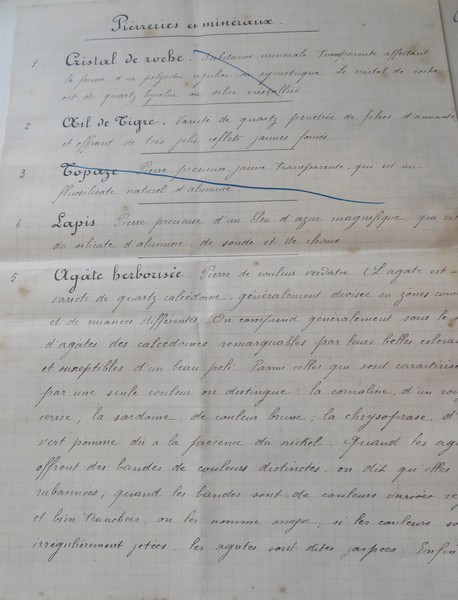 Pierreries et minéraux.
1 Cristal de roche. Substance minérale transparente affectant
la forme d'un polyèdre régulier symétrique. Le cristal de roche
est du quartz hyalin ou silice cristallisée.
2 Œil de Tigre. Variété de quartz pénétrée de fibres d'amiante
et offrant de très jolis reflets jaunes foncés.
3 Topaze. Pierre précieuse, jaune, transparente, qui est un
fluosilicate naturel d'alumine.
4 Lapis. Pierre précieuse d'un bleu d'azur magnifique, qui
du silicate d'alumine, de soude et de chaux
5 Agate herborisée. Pierre de couleur verdâtre (L'agate est
variété de quartz calcédoine, généralement divisée en zones
et de nuances différentes. On comprend généralement sous le
d'agates des calcédoines remarquables par leurs belles
et susceptibles d'un beau poli. Parmi celles qui sont
par une seule couleur on distingue : la cornaline, d'un
cerise ; la sardoine, de couleur brune ; la chrysoprase, d'
vert pomme dû à la présence du nickel. Quand les
offrent des bandes de couleurs distinctes, on dit qu'elles
rubannées ; quand les bandes sont de couleurs variées
et bien tranchées, on les nomme onyx ; si les couleurs
irrégulièrement jetées, les agates sont dites jaspées. Enfin